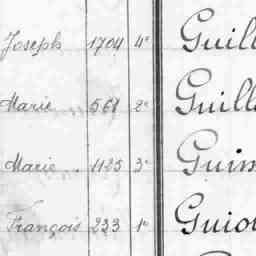 Joseph 1704 4e Guill
Marie 561 2e Guill
Marie 1125 3e Guim
François 233 1e Guiol